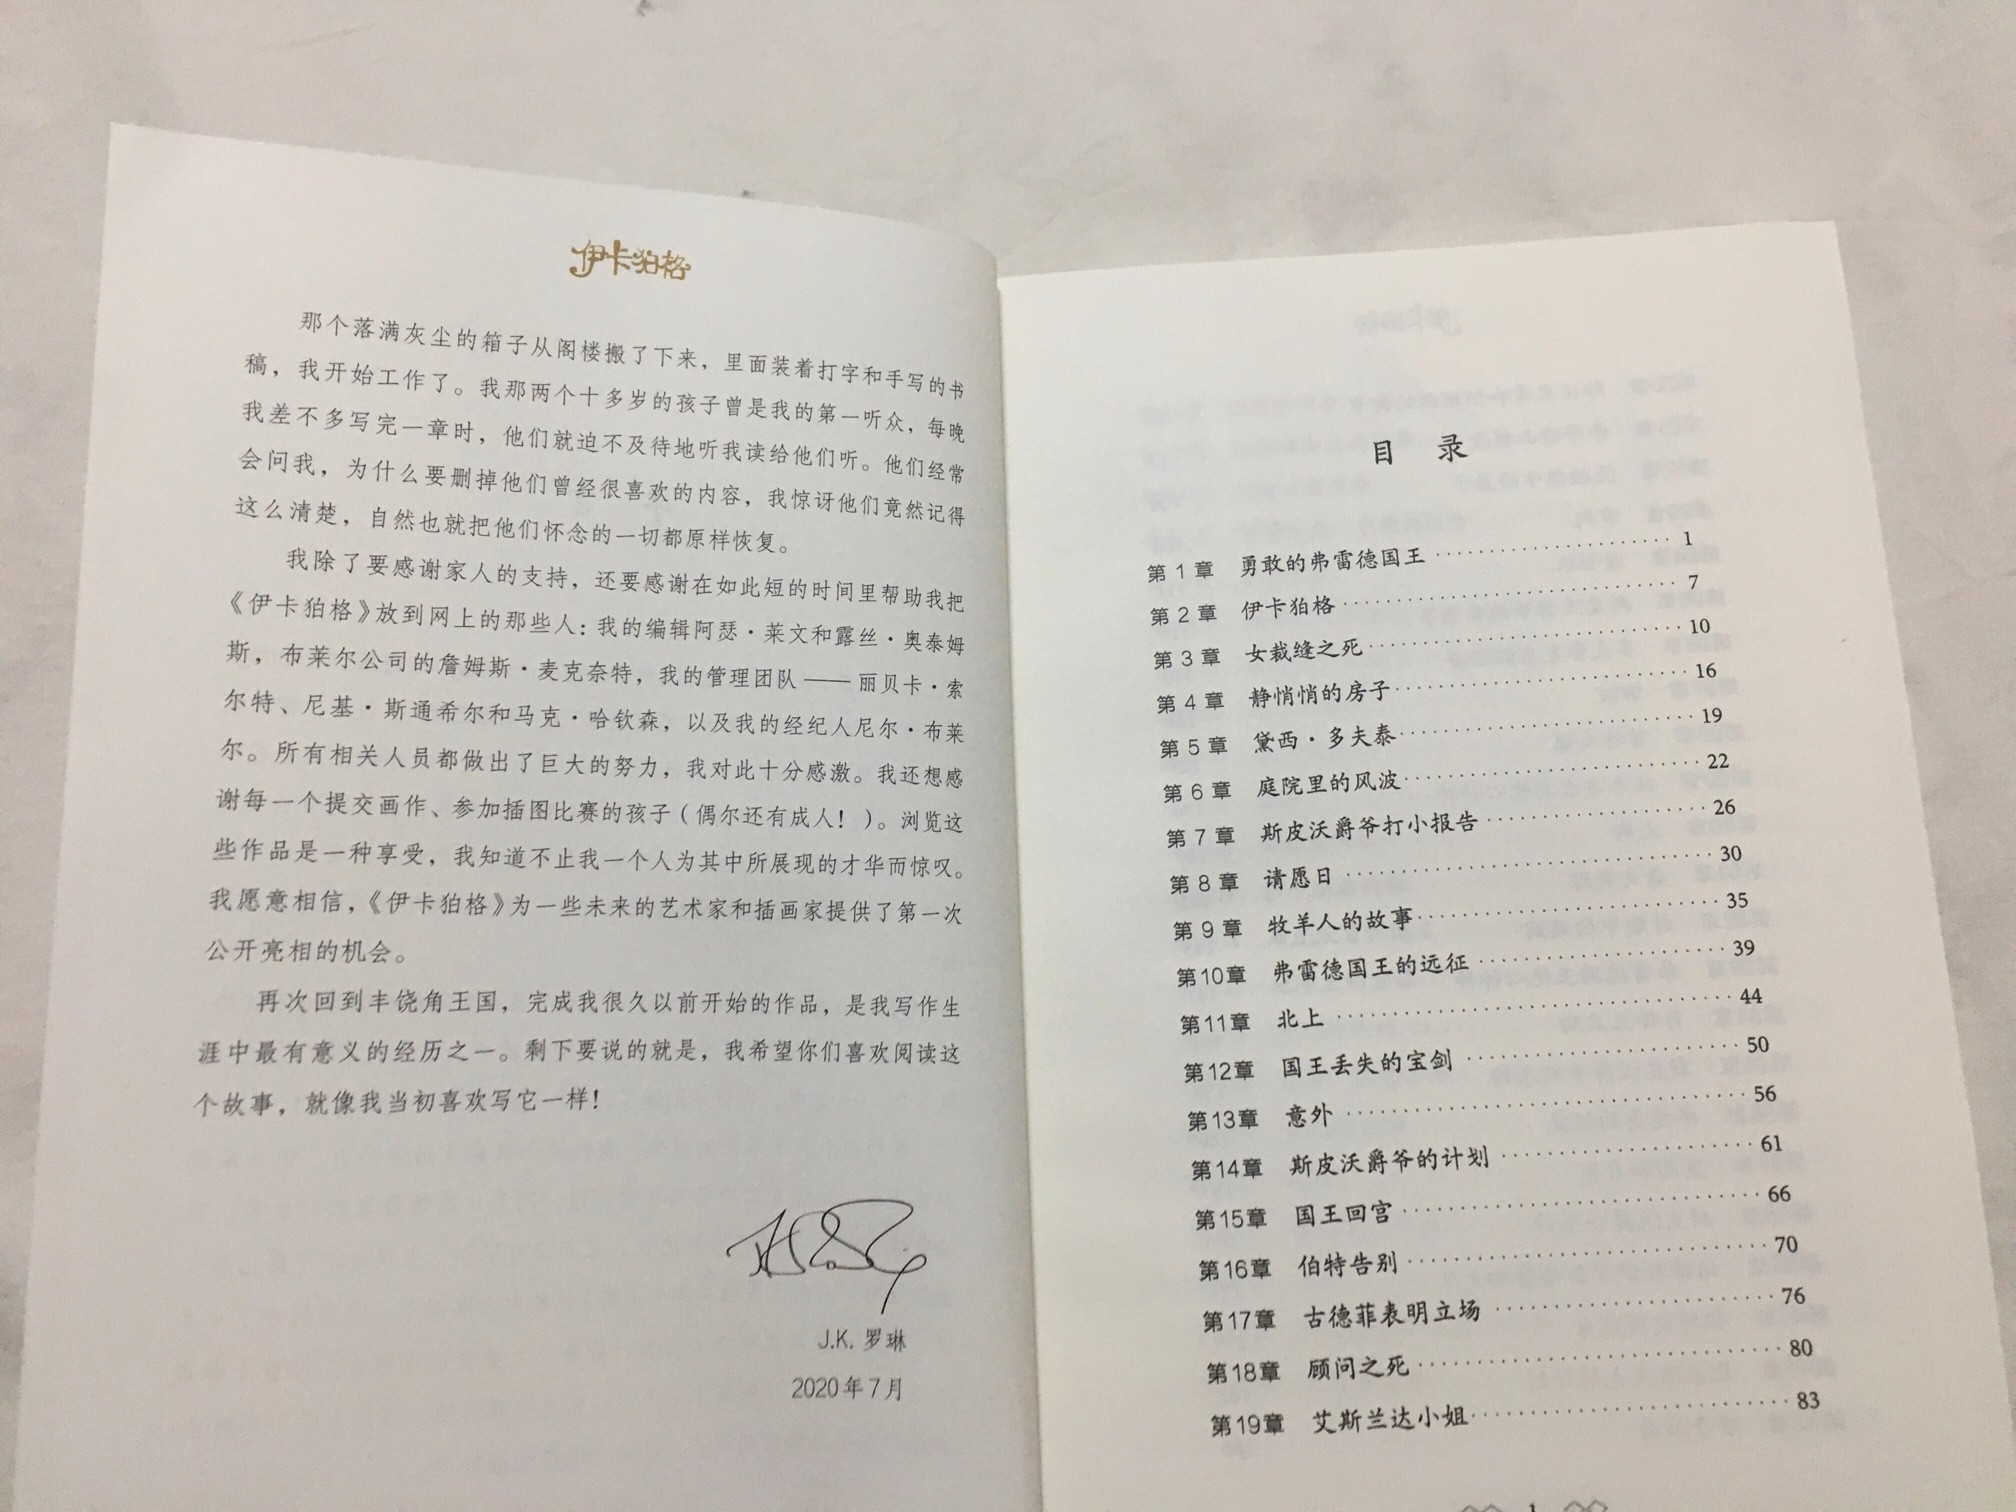 伊卡狛格
那个落满灰尘的箱子从阁楼搬了下来，里面装着打字和手写的书
稿，我开始工作了。我那两个十多岁的孩子曾是我的第一听众，每晚
我差不多写完一章时，他们就迫不及待地听我读给他们听。他们经常
会问我，为什么要删掉他们曾经很喜欢的内容，我惊讶他们竟然记得
这么清楚，自然也就把他们怀念的一切都原样恢复。
我除了要感谢家人的支持，还要感谢在如此短的时间里帮助我把
《伊卡狛格》放到网上的那些人：我的编辑阿瑟·莱文和露丝·奥泰姆
斯，布莱尔公司的詹姆斯·麦克奈特，我的管理团队——丽贝卡·索
尔特、尼基·斯通希尔和马克·哈钦森，以及我的经纪人尼尔·布莱
尔。所有相关人员都做出了巨大的努力，我对此十分感激。我还想感
谢每一个提交画作、参加插图比赛的孩子（偶尔还有成人！）。浏览这
些作品是一种享受，我知道不止我一个人为其中所展现的才华而惊叹。
我愿意相信，《伊卡狛格》为一些未来的艺术家和插画家提供了第一次
公开亮相的机会。
再次回到丰饶角王国，完成我很久以前开始的作品，是我写作生
涯中最有意义的经历之一。剩下要说的就是，我希望你们喜欢阅读这
个故事，就像我当初喜欢写它一样！
J.K. 罗琳
2020年7月
目 录
第1章 勇敢的弗雷德国王 1
第2章 伊卡狛格 7
第3章 女裁缝之死 10
第4章 静悄悄的房子 16
第5章 黛西·多夫泰 19
第6章 庭院里的风波 22
第7章 斯皮沃爵爷打小报告 26
第8章 请愿日 30
第9章 牧羊人的故事 35
第10章 弗雷德国王的远征 39
第11章 北上 44
第12章 国王丢失的宝剑 50
第13章 意外 56
第14章 斯皮沃爵爷的计划 61
第15章 国王回宫 66
第16章 伯特告别 70
第17章 古德菲表明立场 76
第18章 顾问之死 80
第19章 艾斯兰达小姐 83
1